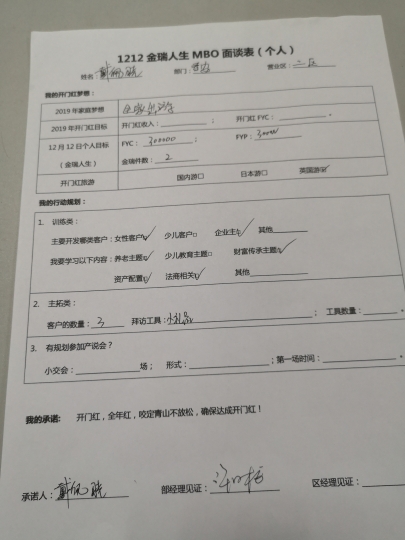 1212 金瑞人生 MBO 面谈表（个人）
姓名 部门： 营业区：二区
我的开门红梦想：
2019 年家庭梦想
2019 年开门红目标 开门红收入： ； 开门红 FYC： 。
12 月 12 日个人目标 FYC： 300000 ； FYP：
（金瑞人生） 金瑞件数： 2
开门红旅游 国内游□ 日本游□ 英国游☑
我的行动规划：
1. 训练类：
主要开发哪类客户：女性客户☑ 少儿客户□ 企业主☑ 其他
我要学习以下内容：养老主题☑ 少儿教育主题□ 财富传承主题☑
资产配置☑ 法商相关☑ 其他
2. 主拓类：
客户的数量： 3 拜访工具：小礼品 ； 工具数量： 。
3. 有规划参加产说会？
小交会： 场； 形式： ；第一场时间： 。
我的承诺： 开门红，全年红，咬定青山不放松，确保达成开门红！
承诺人： 部经理见证： 区经理见证：